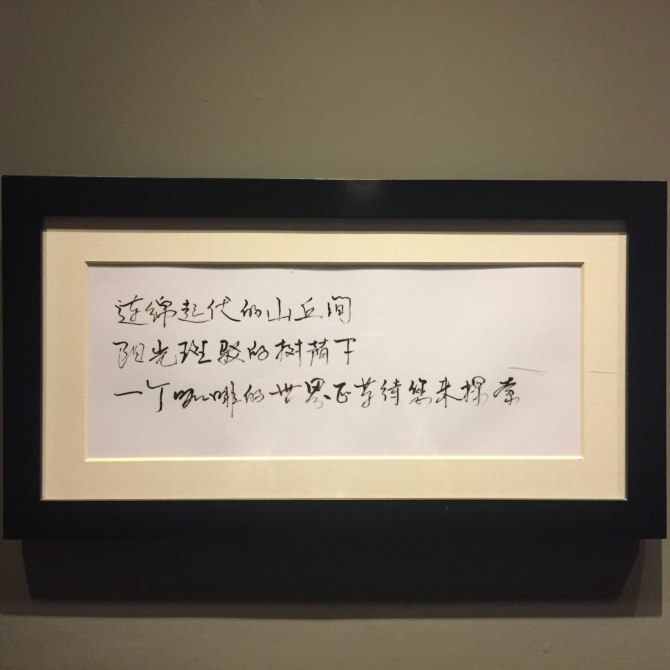 连绵起伏的山丘间
阳光斑驳的树荫下
一个咖啡的世界正等待您来探索